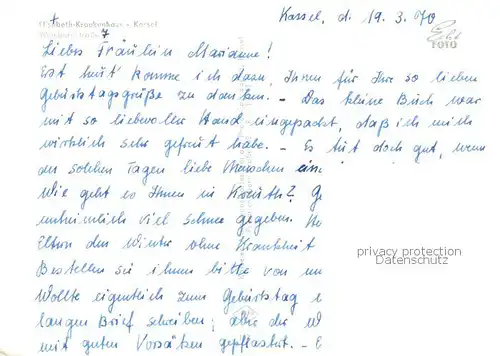 Elisabeth-Krankenhaus - Kassel
Kassel, d. 19.3.70
Echt
FOTO
Liebes Fräulein Marianne!
Erst heut komme ich dazu, Ihnen für Ihre so lieben
Geburtstagsgrüße zu danken. - Das kleine Buch war
mit so liebevoller Hand eingepackt, daß ich mich
wirklich sehr gefreut habe. - Es tut doch gut, wenn
an solchen Tagen liebe Menschen eine
Wie geht es Ihnen in Kreuth? G
unheimlich viel Schnee gegeben.
Eltern den Winter ohne Krankheit
privacy protection
Datenschutz
Bestellen sie ihnen bitte von un
Wollte eigentlich zum Geburtstag
langen Brief schreiben; aber der W
mit guten Vorsätzen gepflastert. - E